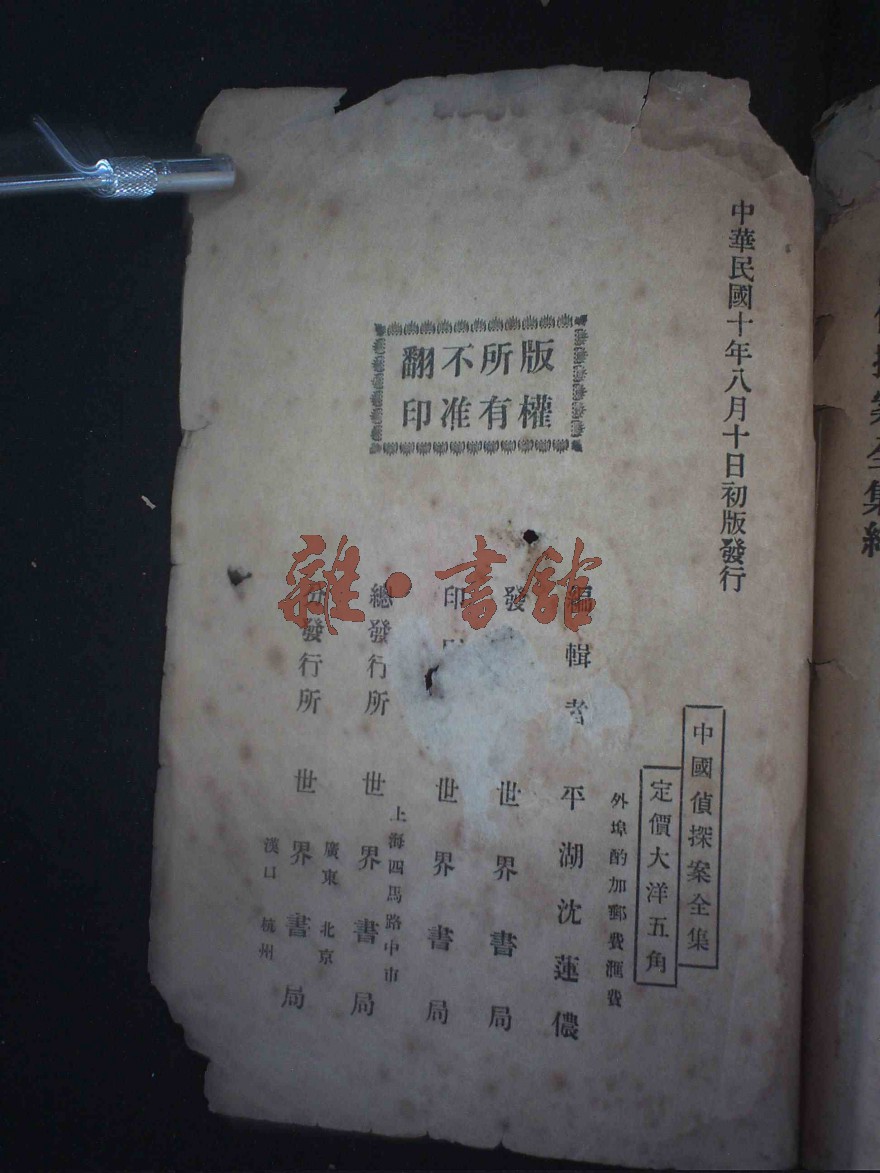 中華民國十年八月十日初版發行
中國偵探案全集
定價大洋五角
外埠酌加郵費滙費
版權
所有
不准
翻印
編輯者 平湖沈蓮儂
發 世界書局
印 世界書局
上海四馬路中市
總發行所 世界書局
廣東 北京
分發行所 世界書局
漢口 杭州
雜·書館
探案全集